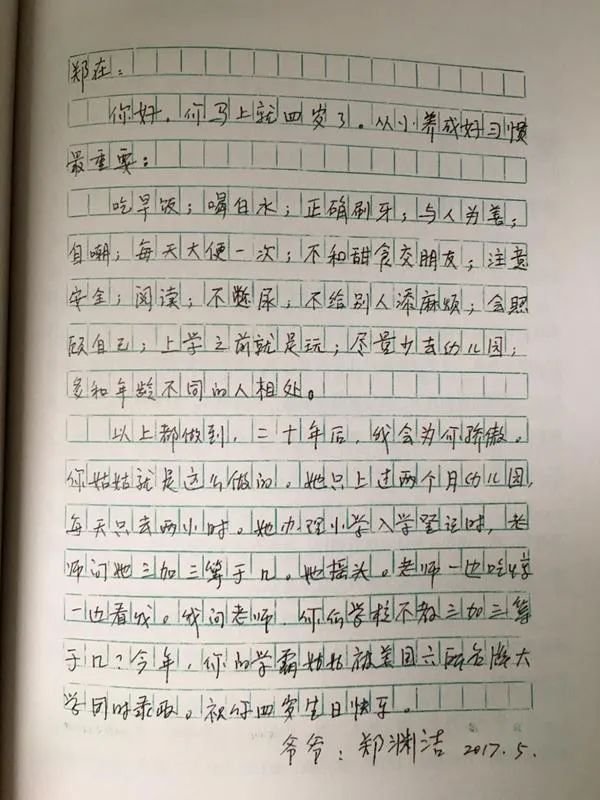 郑在：
你好，你马上就四岁了。从小养成好习惯
最重要：
吃早饭；喝白水；正确刷牙；与人为善；
自嘲；每天大便一次；不和甜食交朋友；注意
安全；阅读；不憋尿；不给别人添麻烦；会照
顾自己；上学之前就是玩；尽量少去幼儿园；
多和年龄不同的人相处。
以上都做到，二十年后，我会为你骄傲。
你姑姑就是这么做的。她只上过两个月幼儿园，
每天只去两小时。她办理小学入学登记时，老
师问她三加三等于几。她摇头。老师一边吃惊
一边看我。我问老师，你们学校不教三加三等
于几？今年，你的学霸姑姑被美国六所名牌大
学同时录取。祝你四岁生日快乐。
爷爷：郑渊洁 2017.5.